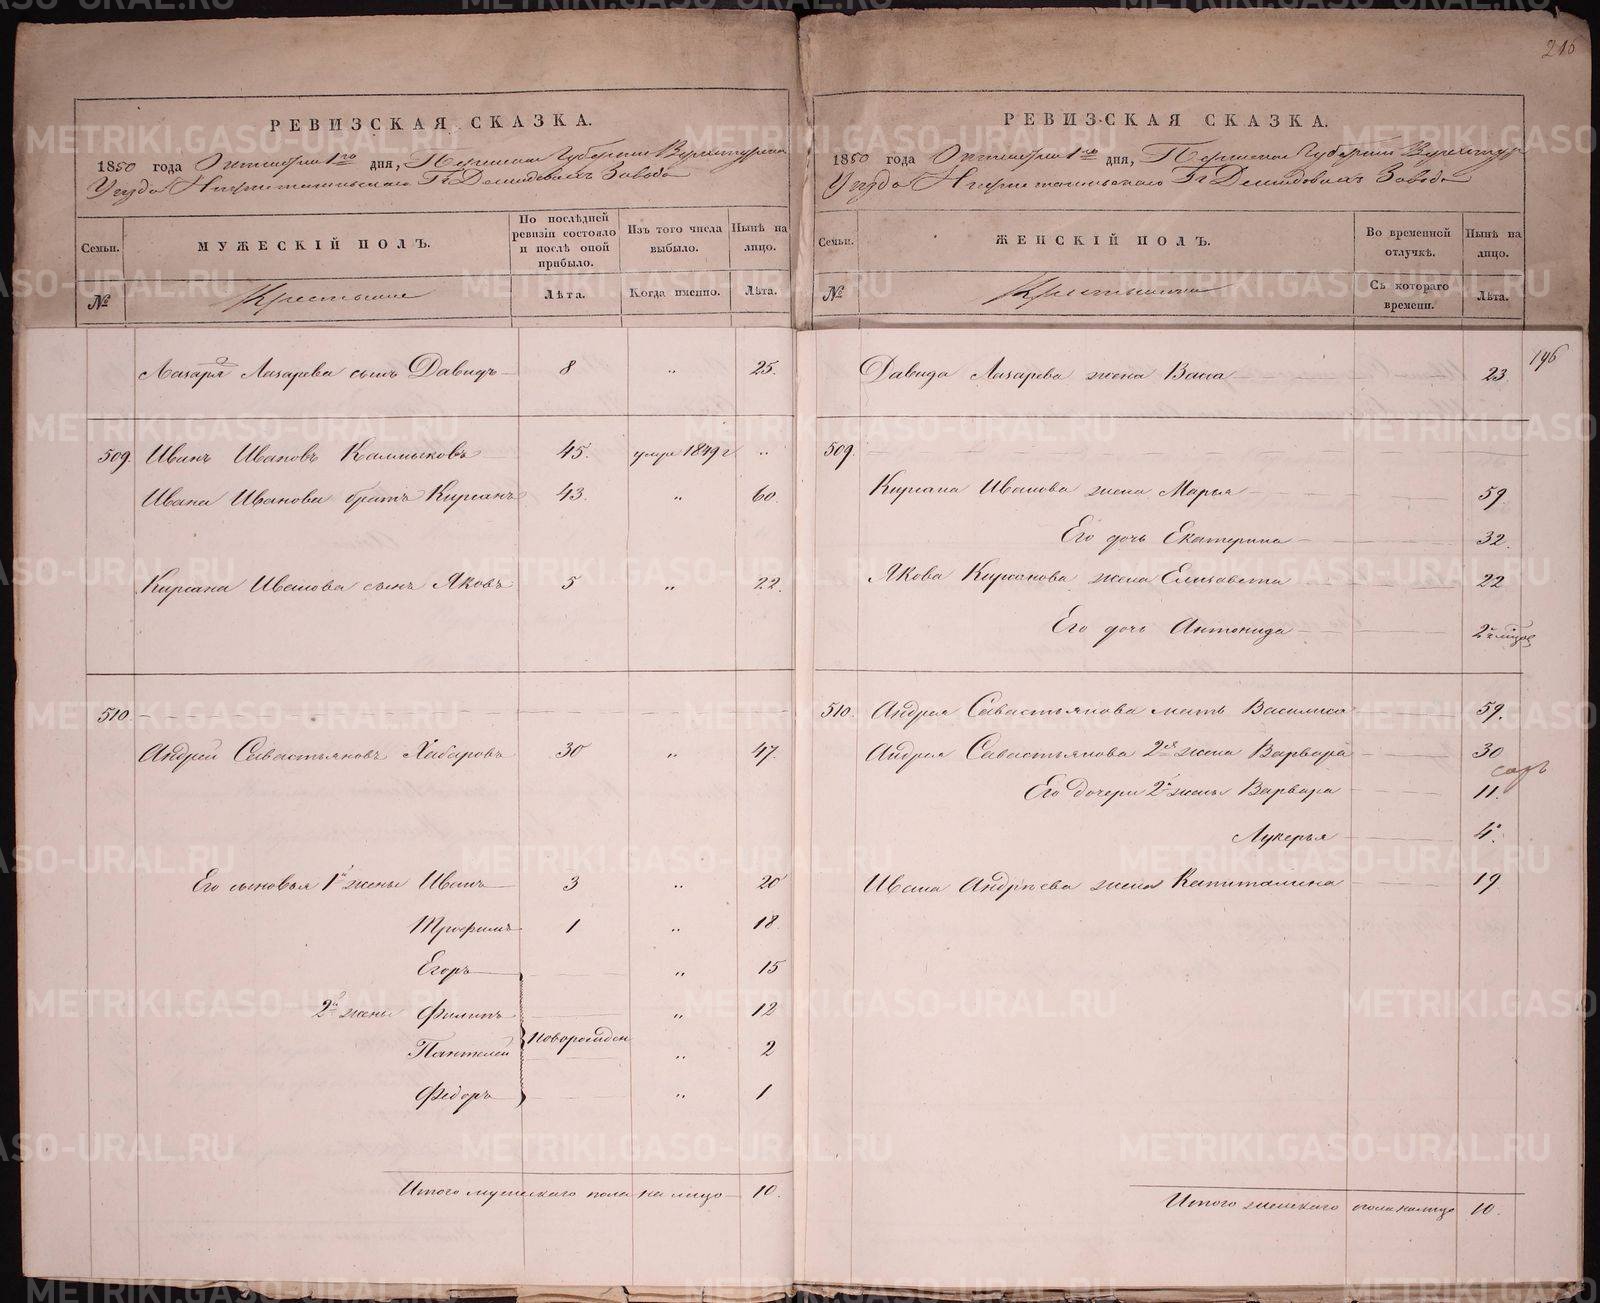 РЕВИЗСКАЯ СКАЗКА.
1850 года Октября 1го дня, Пермской Губернии Верхотурского
Уезда Нижнетагильского Гг. Демидовыхъ Завода
Семьи.
МУЖЕСКІЙ ПОЛЪ.
По послѣдней ревизіи состояло и послѣ оной прибыло.
Изъ того числа выбыло.
Нынѣ на лицо.
№
Крестьяне
Лѣта.
Когда именно.
Лѣта.
Лазаря Лазарева сынъ Давидъ 8 " 25.
509. Иванъ Ивановъ Калмыковъ 45. умре 1849 г "
Ивана Иванова братъ Кирсанъ 43. " 60.
Кирсана Иванова сынъ Яковъ 5 " 22.
510.
Андрей Савастьяновъ Хабаровъ 30 " 47.
Его сыновья 1й жены Иванъ 3 " 20
Трофимъ 1 " 18
Егоръ " 15
2й жены Филипъ " 12
Новорожден
Пантелей " 2
Федоръ " 1
Итого мужескаго пола на лицо 10.
216
РЕВИЗСКАЯ СКАЗКА.
1850 года Октября 1го дня, Пермской Губернии Верхотур
Уезда Нижнетагильскаго Гг. Демидовыхъ Завода
Семьи.
ЖЕНСКІЙ ПОЛЪ.
Во временной отлучкѣ.
Нынѣ на лицо.
№
Крестьянки
Съ котораго времени.
Лѣта.
146
Давида Лазарева жена Васса 23
509.
Кирсана Иванова жена Марья 59
Его дочь Екатерина 32.
Якова Кирсанова жена Елизавета 22
Его дочь Антонида 2 мѣсяц
510. Андрея Савастьянова мать Василиса 59.
Андрея Савастьянова 2я жена Варвара 30
Его дочери 2й жены Варвара 11.
Лукерья 4.
Ивана Андрѣева жена Капиталина 19
Итого женскаго пола налицо 10.
METRIKI.GASO-URAL.RU